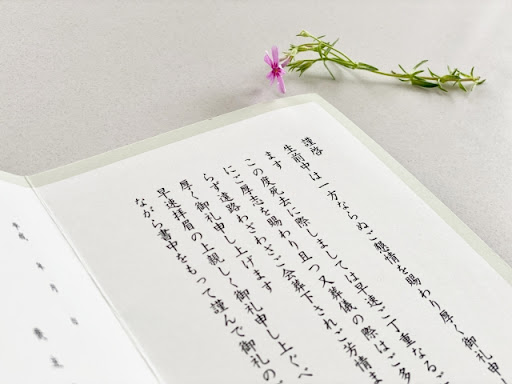 謹啓
生前中は一方ならぬご懇情を賜わり厚く御礼申し
ます
この度死去に際しましては早速ご丁重なるご
にご厚志を賜わり且つ又葬儀の際はご多
らず遠路わざわざご会葬下されご芳情ま
厚く御礼申し上げます
早速拝眉の上親しく御礼申し上ぐべ
ながら書中をもって謹んで御礼のご